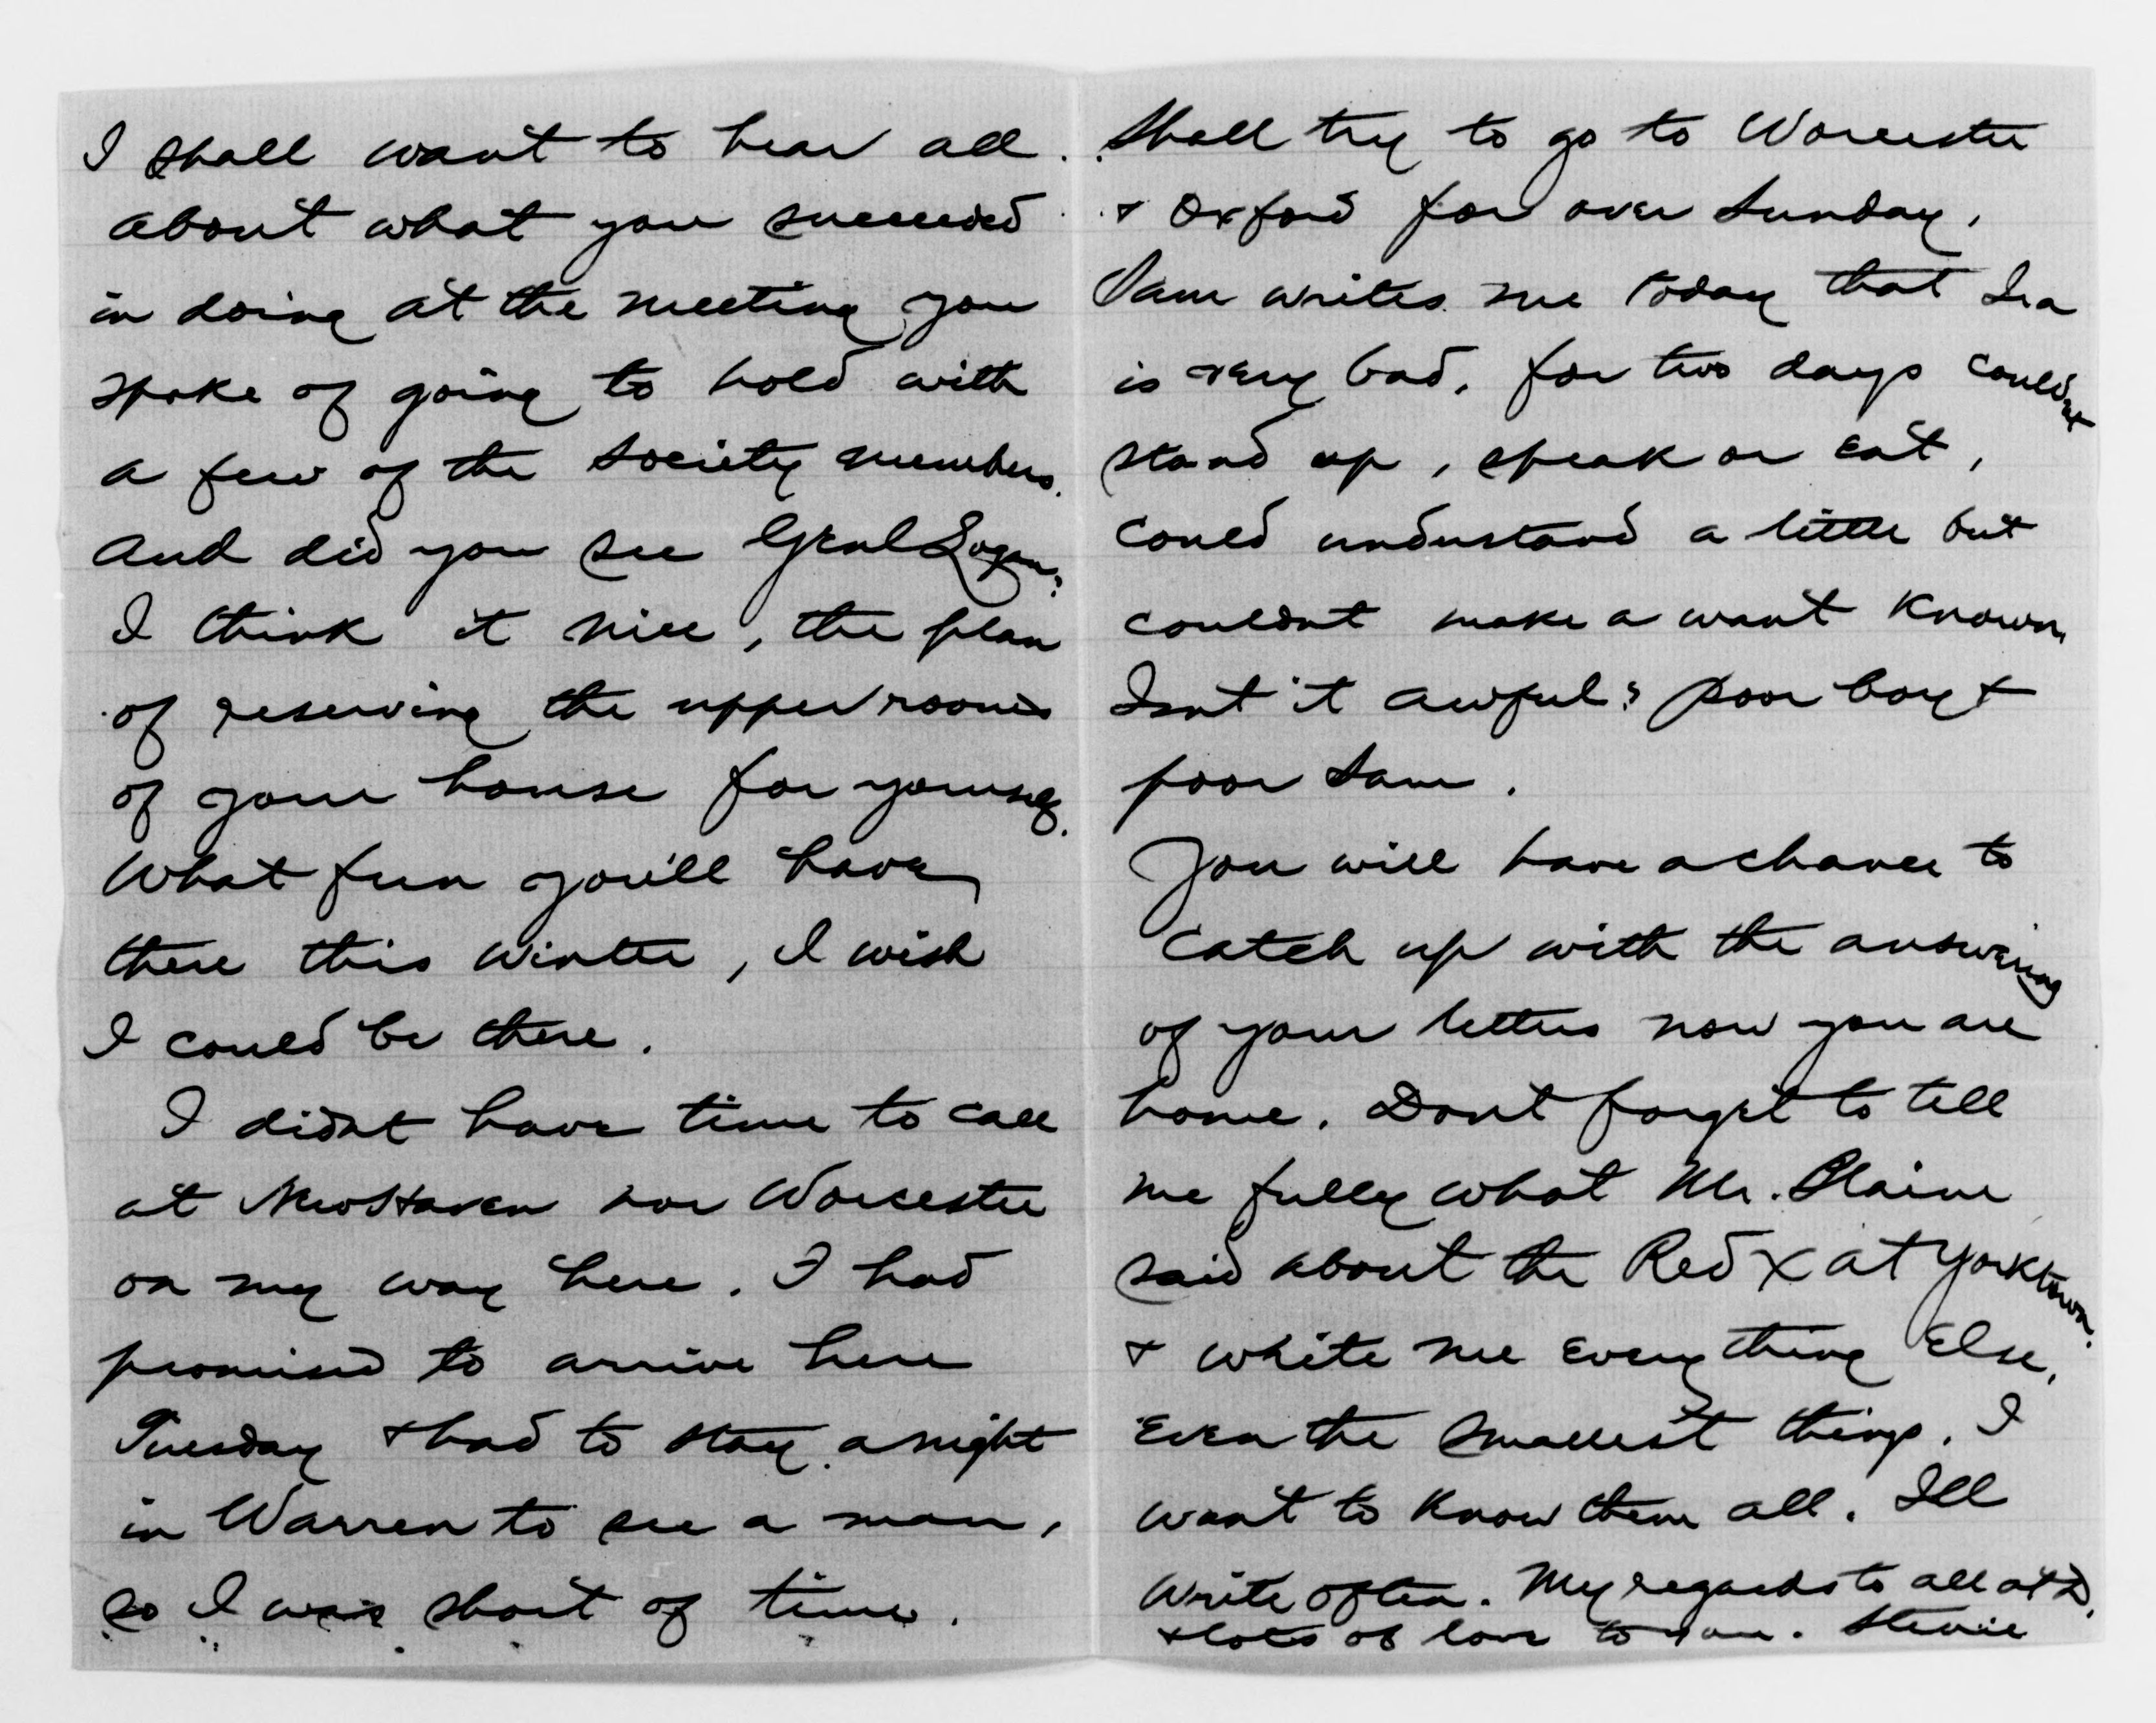 I shall want to hear all
about what you succeeded
in doing at the meeting you
spoke of going to hold with
a few of the Society members.
And did you see Genl Logan?
I think it nice, the plan
of reserving the upper rooms
of your house for yourself.
What fun you'll have
there this winter, I wish
I could be there.
I didnt have time to call
at New Haven nor Worcester
on my way here. I had
promised to arrive here
Tuesday & had to stay a night
in Warren to see a man,
so I was short of time.
Shall try to go to Worcester
& Oxford for over Sunday.
Sam writes me today that Ira
is very bad, for two days couldnt
stand up, speak or eat,
could understand a little but
couldnt make a want known.
Isnt it awful? poor boy &
poor Sam.
You will have a chance to
catch up with the answering
of your letters now you are
home. Dont forget to tell
me fully what Mr. Blaine
said about the Red X at Yorktown.
& white me every thing else,
Even the smallest things. I
want to know them all. Ill
write often. My regards to all at D.
& lots of love to you. Stevie